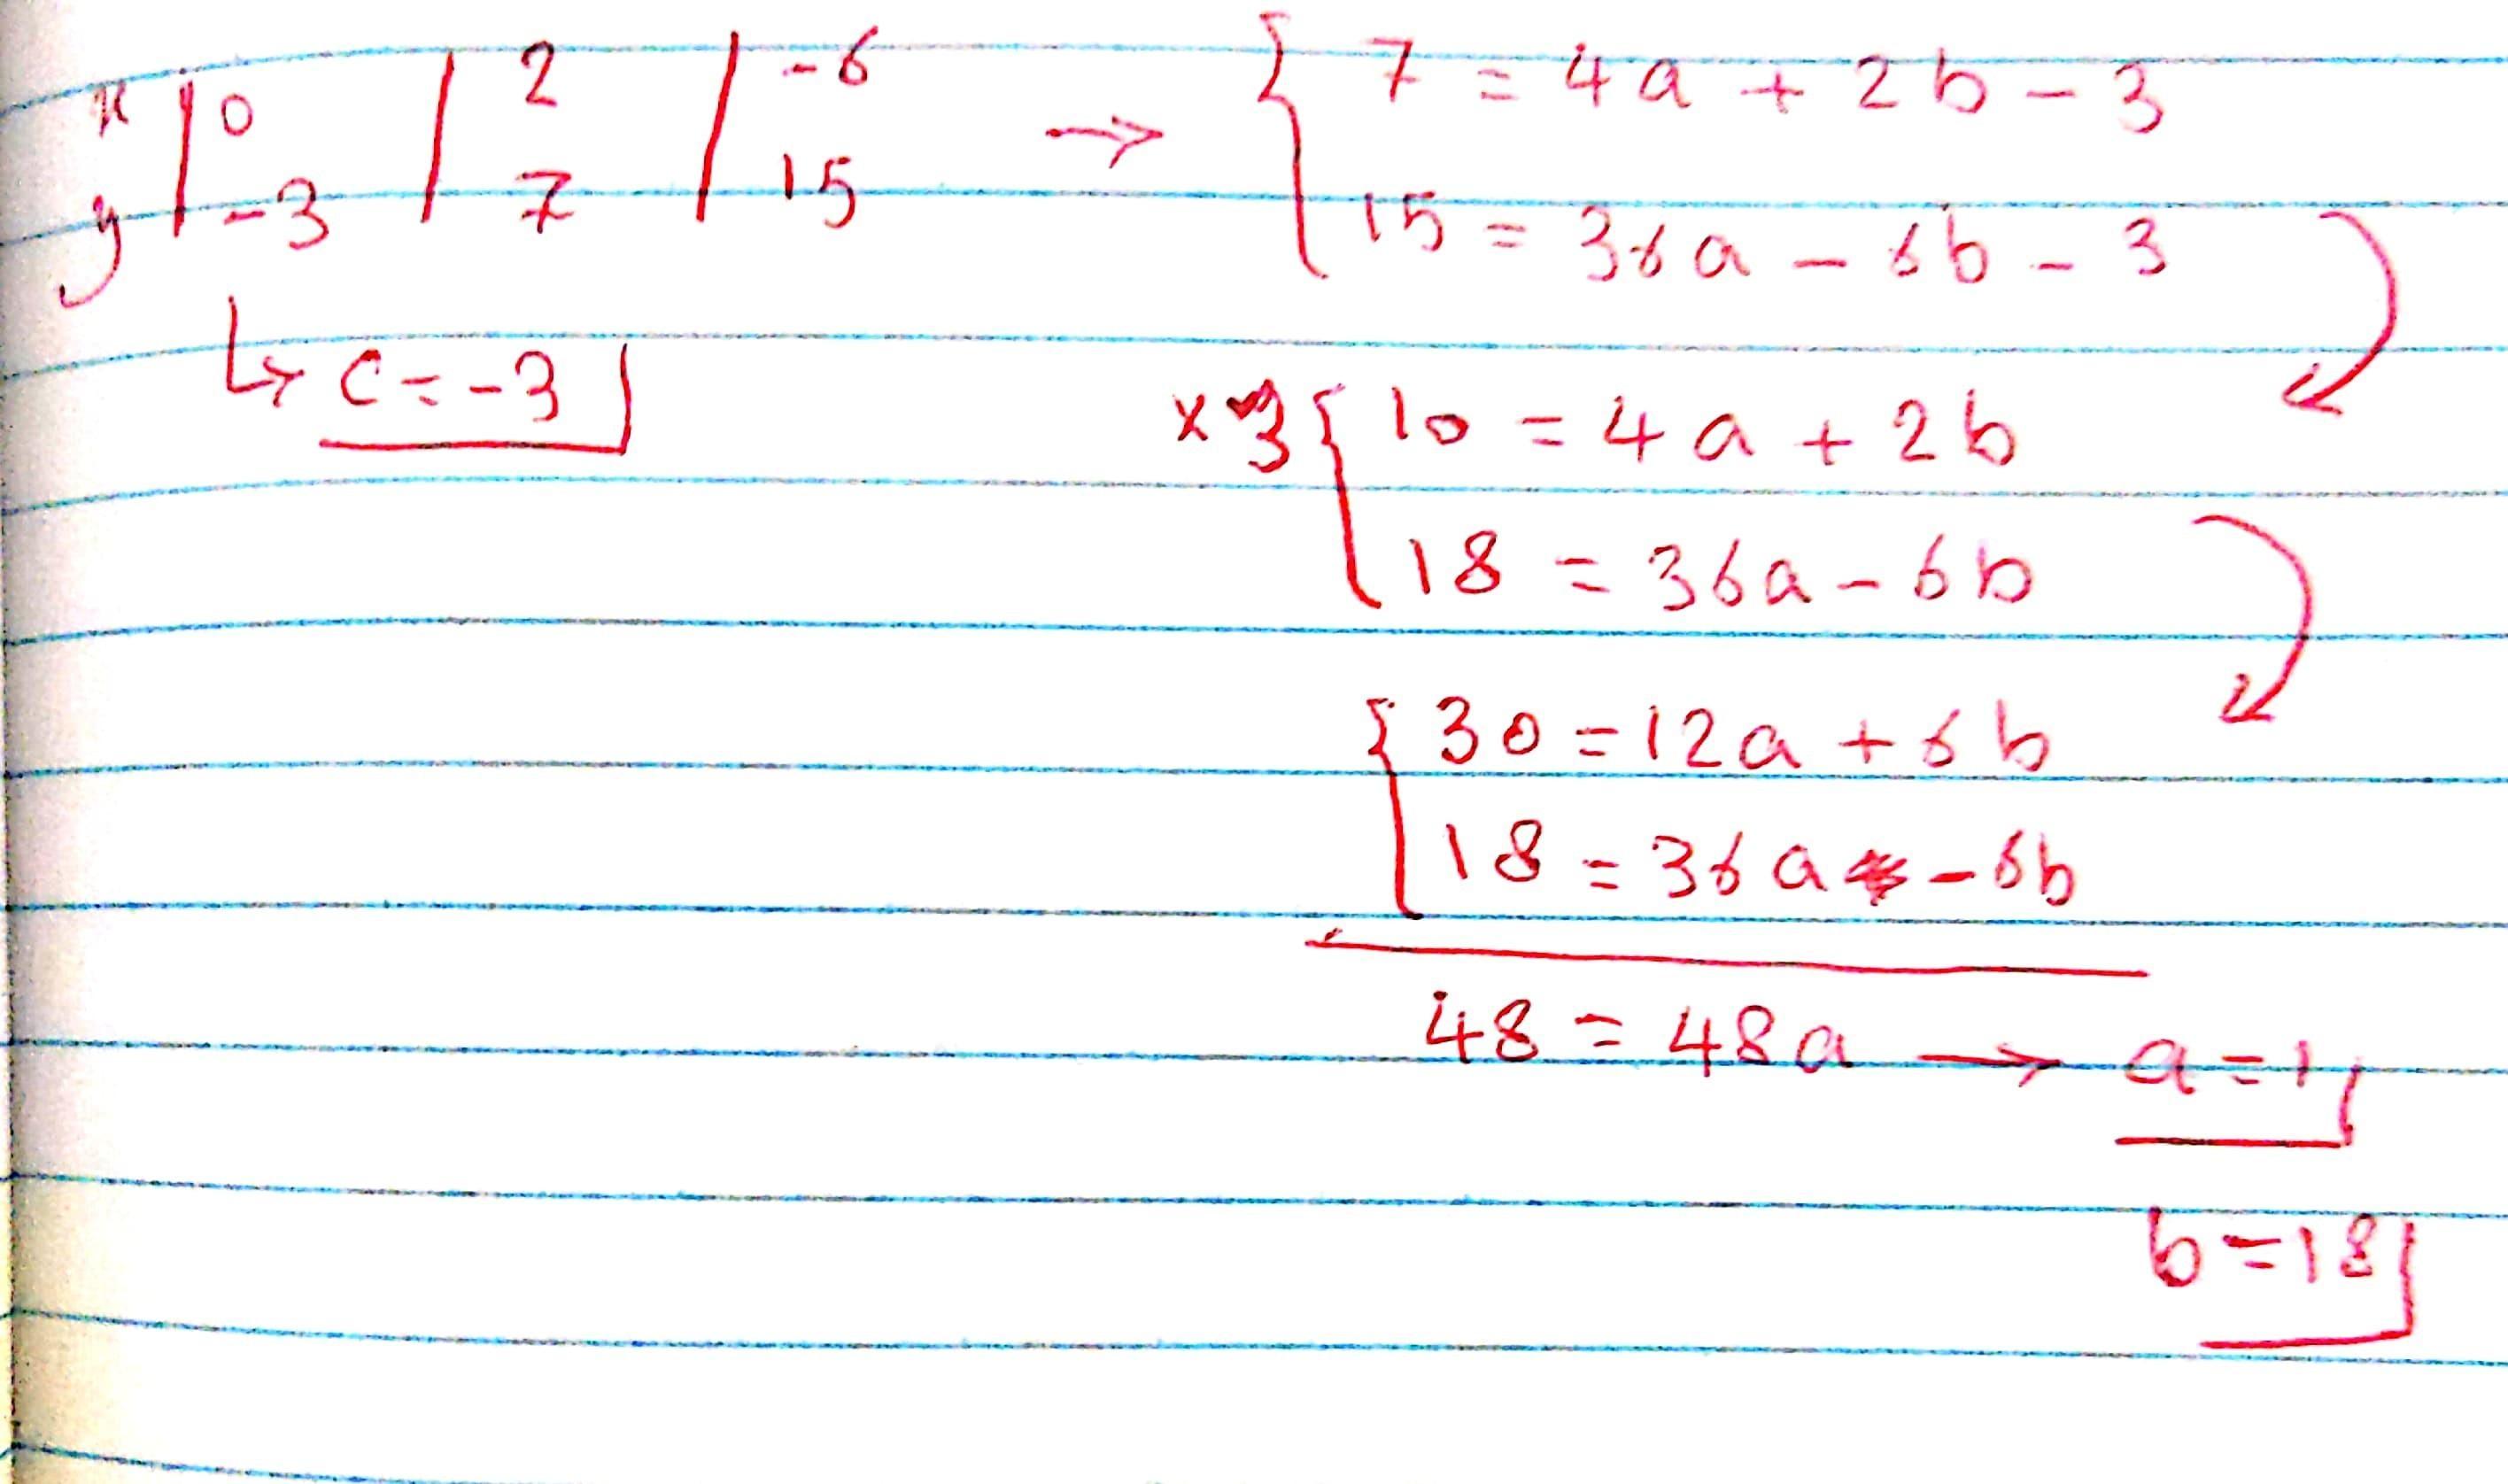 x | 0 | 2 | -6
y | -3 | 7 | 15
→ { 7 = 4a + 2b - 3
15 = 36a - 6b - 3
↳ c = -3
x 3 { 10 = 4a + 2b
18 = 36a - 6b
{ 30 = 12a + 6b
18 = 36a - 6b
48 = 48a → a = 1
b = 18